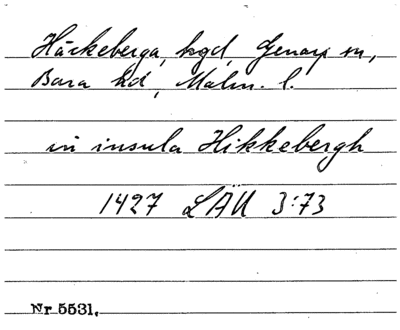 Häckeberga, hgd, Genarp sn,
Bara hd, Malm. l.
in insula Hikkebergh
1427 LÄU 3:73
Nr 5531.